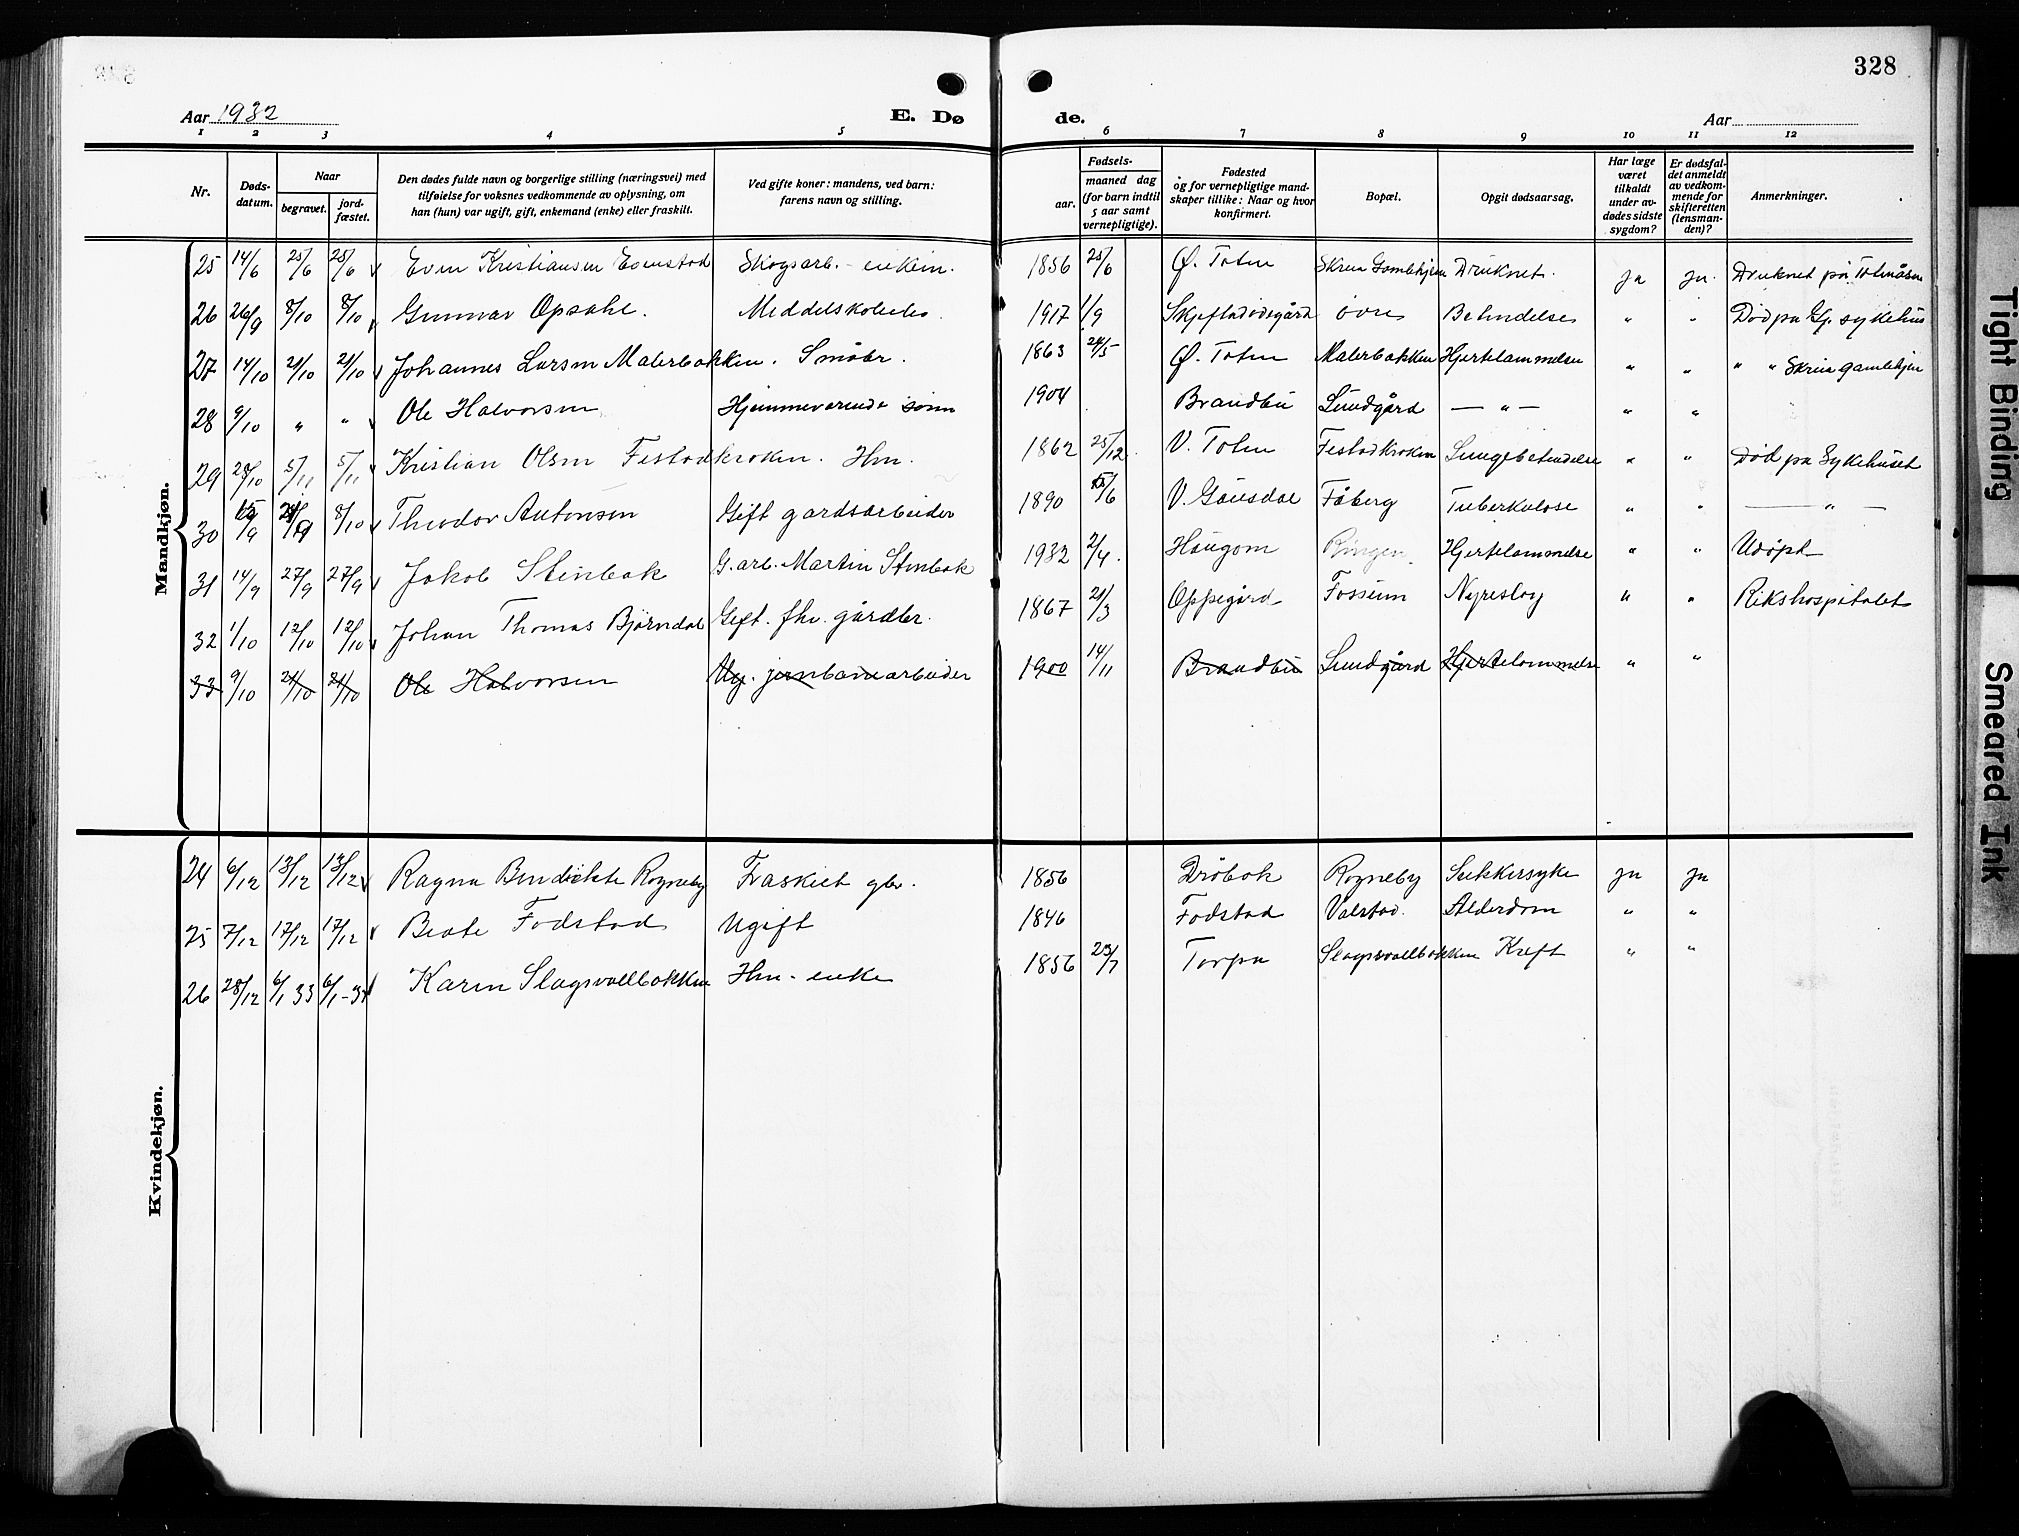 328
Aar 1932
E. Dø
de.
Aar
1 2 3 4 5 6 7 8 9 10 11 12
Nr.
Døds-
datum.
Naar
begravet.
jord-
fæstet.
Den dødes fulde navn og borgerlige stilling (næringsvei) med
tilføielse for voksnes vedkommende av oplysning, om
han (hun) var ugift, gift, enkemand (enke) eller fraskilt.
Ved gifte koner: mandens, ved barn:
farens navn og stilling.
Fødsels-
aar.
maaned dag
(for barn indtil
5 aar samt
vernepligtige).
Fødested
og for vernepligtige mand-
skaper tillike: Naar og hvor
konfirmert.
Bopæl.
Opgit dødsaarsag.
Har læge
været
tilkaldt
under av-
dødes sidste
sygdom?
Er dødsfal-
det anmeldt
av vedkom-
mende for
skifteretten
(lensman-
den)?
Anmerkninger.
Mandkjøn.
25 14/6 25/6 25/6 Even Kristiansen Evenstad Skogsarb. - enkem. 1856 25/6 Ø. Toten Skreia Gamlehjem Druknet. ja ja. Druknet på Totenåsen
26 26/9 8/10 8/10 Gunnar Opsahl. Middelskoleelev. 1917 1/9 øvre Betendelse " " Død på Gj. sykehus
27 14/10 21/10 21/10 Johannes Larsen Malerbakken. Småbr. 1863 24/5 Ø. Toten Malerbakken Hjertelammelse " " " " Skreia gamlehjem
28 9/10 " " Ole Halvorsen Hjemmeværende sønn 1904 Brandbu Lundgård — " — " "
29 28/10 5/11 5/11 Kristian Olsen Festadkroken. Hm. 1862 25/12. V. Toten Festadkroken Lungebetendelse " " Død på Sykehuset
30 /9 8/10 Theodor Antonsen Gift gardsarbeider 1890 /6 V. Gausdal Fåberg Tuberkulose " " — " —
31 14/9 27/9 27/9 Jakob Stenbak G. arb. Martin Stenbak 1932 2/4. Haugom Ringen Hjertelammelse " " Udøpt
32 1/10 12/10 12/10 Johan Thomas Bjørndal Gift. fhv. gårdbr. 1867 21/3 Oppegård Fossum Nyreslag " " Rikshospitalet
33 9/10 21/10 21/10 Ole Halvorsen Ug. jernbanearbeider 1900 14/11 Brandbu Lundgård Hjertelammelse " "
Kvindekjøn.
24 6/12 13/12 13/12 Ragna Bendikte Rogneby Fraskilt gbr. 1856 Drøbak Rogneby Sukkersyke ja ja
25 7/12 17/12 17/12 Beate Fodstad Ugift 1846 Fodstad Valstad. Alderdom " "
26 28/12 6/1 33 6/1-33 Karen Slagsvollbakken Hm - enke 1856 23/7 Torpa Slagsvollbakken Kreft " "
Tight Binding
Smeared Ink